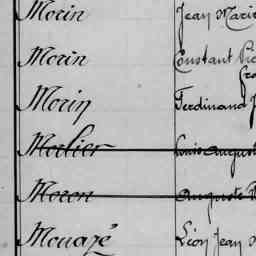 Morin Jean Marie
Morin Constant
Morin Ferdinand
Morlier Louis August
Moron Auguste
Mouazé Léon Jean